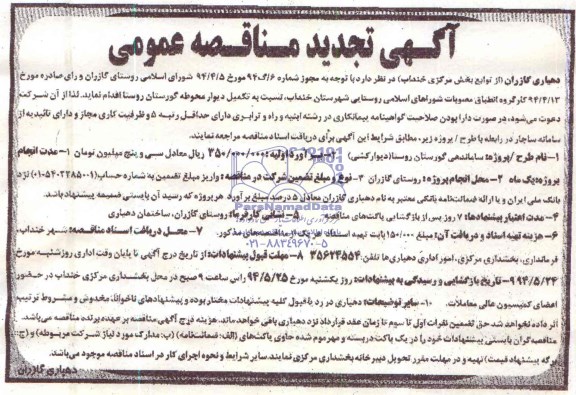 آگهی تجدید مناقصه عمومی
دهیاری گازران (از توابع بخش مرکزی خنداب) در نظر دارد با توجه به مجوز شماره ۶/گ۹۴ مورخ ۹۴/۴/۵ شورای اسلامی روستای گازران و رای صادره مورخ
۹۴/۴/۱۳ کارگروه انطباق مصوبات شوراهای اسلامی روستایی شهرستان خنداب، نسبت به تکمیل دیوار محوطه گورستان روستا اقدام نماید. لذا از آن شرکت
دعوت می‌شود، در صورت دارا بودن صلاحیت گواهینامه پیمانکاری در رشته ابنیه و راه و ترابری دارای حداقل رتبه ۵ و ظرفیت کاری مجاز و دارای تائیدیه از
سامانه ساجار در رابطه با طرح / پروژه زیر، مطابق شرایط این آگهی برای دریافت اسناد مناقصه مراجعه نمایند.
۱- نام طرح / پروژه: ساماندهی گورستان روستا (دیوارکشی) برآورد اولیه: ۳۵۰/۰۰۰/۰۰۰ ریال معادل سی و پنج میلیون تومان ۱- مدت انجام
پروژه: یک ماه ۲- محل انجام پروژه: روستای گازران ۳- نوع و مبلغ تضمین شرکت در مناقصه: واریز مبلغ تضمین به شماره حساب
بانک ملی ایران و یا ارائه ضمانتنامه بانکی معتبر به نام دهیاری گازران معادل ۵ درصد مبلغ برآورد هر پروژه که رسید آن بایستی ضمیمه پیشنهاد باشد.
۴- مدت اعتبار پیشنهادها: ۷ روز پس از بازگشایی پاکت‌های مناقصه. ۵- نشانی کارفرما: روستای گازران، ساختمان دهیاری
۶- هزینه تهیه اسناد و دریافت آن: مبلغ ۱۵۰/۰۰۰ بابت تهیه اسناد هر یک از مناقصه‌های مذکور. ۷- محل دریافت اسناد مناقصه: شهر خنداب،
فرمانداری، بخشداری مرکزی، امور اداری دهیاری‌ها تلفن: ۳۵۶۲۴۵۵۴ ۸- مهلت قبول پیشنهادات: از تاریخ درج آگهی تا پایان وقت اداری روز شنبه مورخ
۹۴/۵/۲۴ ۹- تاریخ بازگشایی و رسیدگی به پیشنهادات: روز یکشنبه مورخ ۹۴/۵/۲۵ راس ساعت ۹ صبح در محل بخشداری مرکزی خنداب در حضور
اعضای کمیسیون عالی معاملات. ۱۰- سایر توضیحات: دهیاری در رد یا قبول کلیه پیشنهادات مختار بوده و پیشنهادهای ناخوانا، مخدوش و مشروط ترتیب
اثر داده نخواهد شد حق تضمین نفرات اول تا سوم تا زمان عقد قرارداد نزد دهیاری باقی خواهد ماند. هزینه درج آگهی مناقصه بر عهده برنده مناقصه می‌باشد.
مناقصه‌گران بایستی پیشنهادات خود را در یک پاکت دربسته و مهر و موم شده حاوی پاکت‌های (الف: ضمانتنامه) (ب: مدارک مورد نیاز شرکت مربوطه) و (ج:
برگه پیشنهاد قیمت) تهیه و در مهلت مقرر تحویل دبیرخانه بخشداری مرکزی نمایند. سایر شرایط و نحوه اجرای کار در اسناد مناقصه موجود می‌باشد.
دهیاری گازران
ParsNamadData
۰۲۱-۸۸۳۴۹۶۷۰-۵